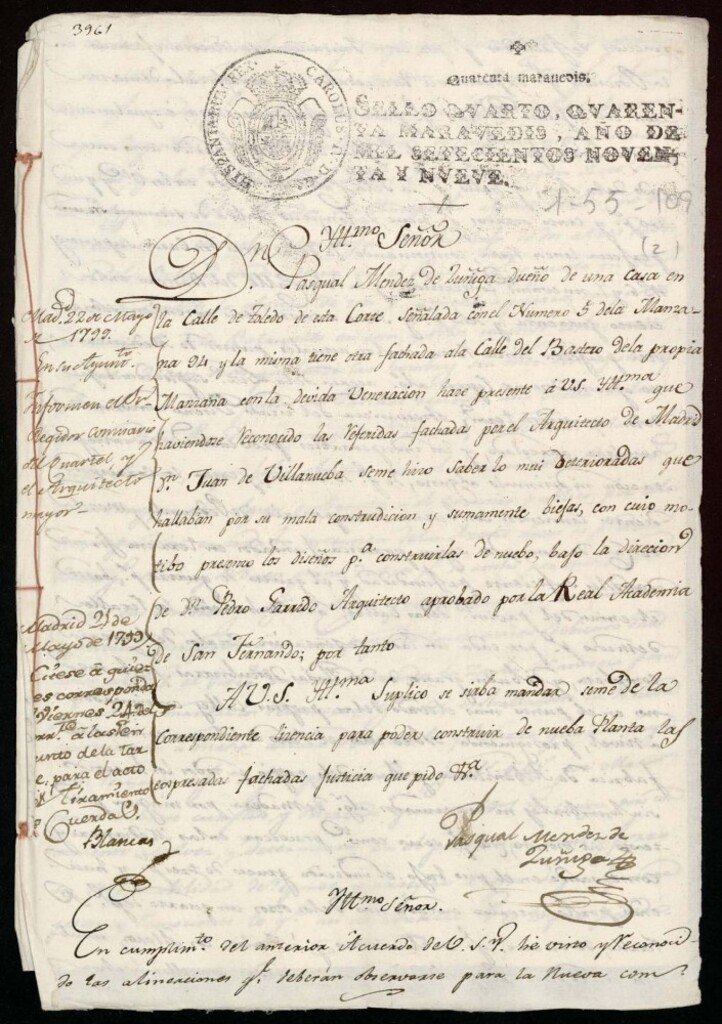 3961
Quarenta maravedis.
SELLO QVARTO, QVAREN-
TA MARAVEDIS, AÑO DE
MIL SETECIENTOS NOVEN-
TA Y NVEVE.
CAROLUS IV D.G.
HISPANIARUM REX
1-55-109
(2)
Yll.mo Señor
D.n Pasqual Mendez de Zuñiga dueño de una casa en
la Calle de Toledo de esta Corte señalada con el Numero 5 dela Manza-
na 94 y la misma tiene otra fachada ala Calle del Bastero dela propia
Manzana con la devida Veneracion hace presente à V.S. Yll.ma que
haviendose reconocido las referidas fachadas por el Arquitecto de Madrid
D.n Juan de Villanueba seme hizo saber lo mui deterioradas que
hallaban por su mala construdicion y sumamente biejas, con cuio mo-
tibo presento los diseños p.a construirlas de nuebo, bajo la direccion
de D.n Pedro Garrido Arquitecto aprobado por la Real Academia
de San Fernando; por tanto
A V.S. Yll.ma Suplico se sirba mandar seme de la
Correspondiente licencia para poder construir de nueba Planta las
espresadas fachadas Justicia que pido &.a
Pasqual Mendez de
Zuñiga
Mad.d 22 de Mayo
de 1799.
En su Ayunt.to
Informen el S.r
Regidor Comisario
del Quartel y
el Arquitecto
mayor
Madrid 21 de
Mayo de 1799
Citese à quie-
nes corresponda
Viernes 24 del
corr.te à las cin
en punto de la tar
de, para el acto
de tiramiento
de Cuerdas.
Blancas
Yll.mo Señor.
En cumplim.to del anterior Acuerdo de V.S.Y. he visto y reconoci-
do las alineaciones q.e deberán observarse para la Nueva cons